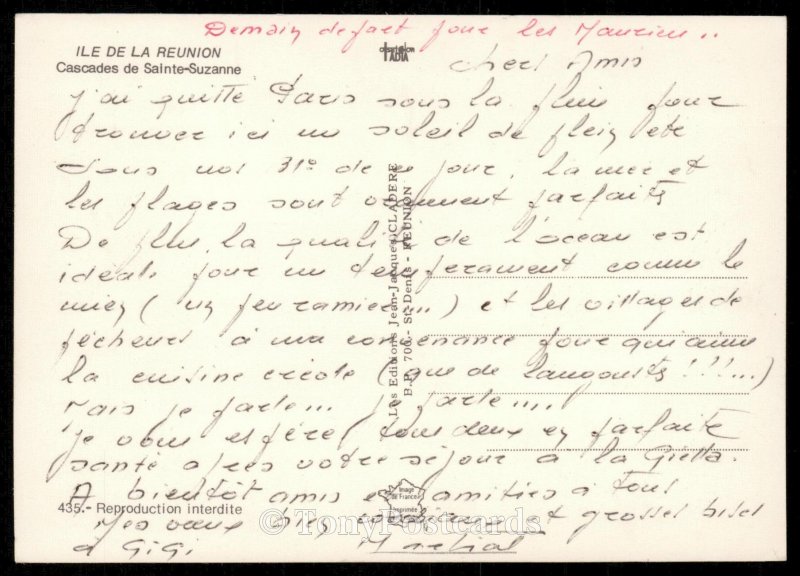 Demain depart pour les Maurices..
ILE DE LA REUNION
Cascades de Sainte-Suzanne
Chers Amis
j'ai quitté Paris sous la pluie pour
trouver ici un soleil de plein été
sous nos 31° de jour, la mer et
les plages sont vraiment parfaits
De plus, la qualité de l'océan est
idéale pour un tempérament comme le
mien (un peu ramier...) et les villages de
pêcheurs à ma convenance pour qui aime
la cuisine créole (que de langoustes !!!...)
Mais je parle.... je parle....
Je vous espère tous deux en parfaite
santé après votre séjour à la Gietta.
A bientôt amis et amitiés à tous
435.- Reproduction interdite
Mes vœux bien et grosses bises
à GiGi Martial
Les Editions Jean-Jacques CLADERE
B.P. 700 - St-Denis - REUNION
Image de France
Imprimée
© TonyPostcards